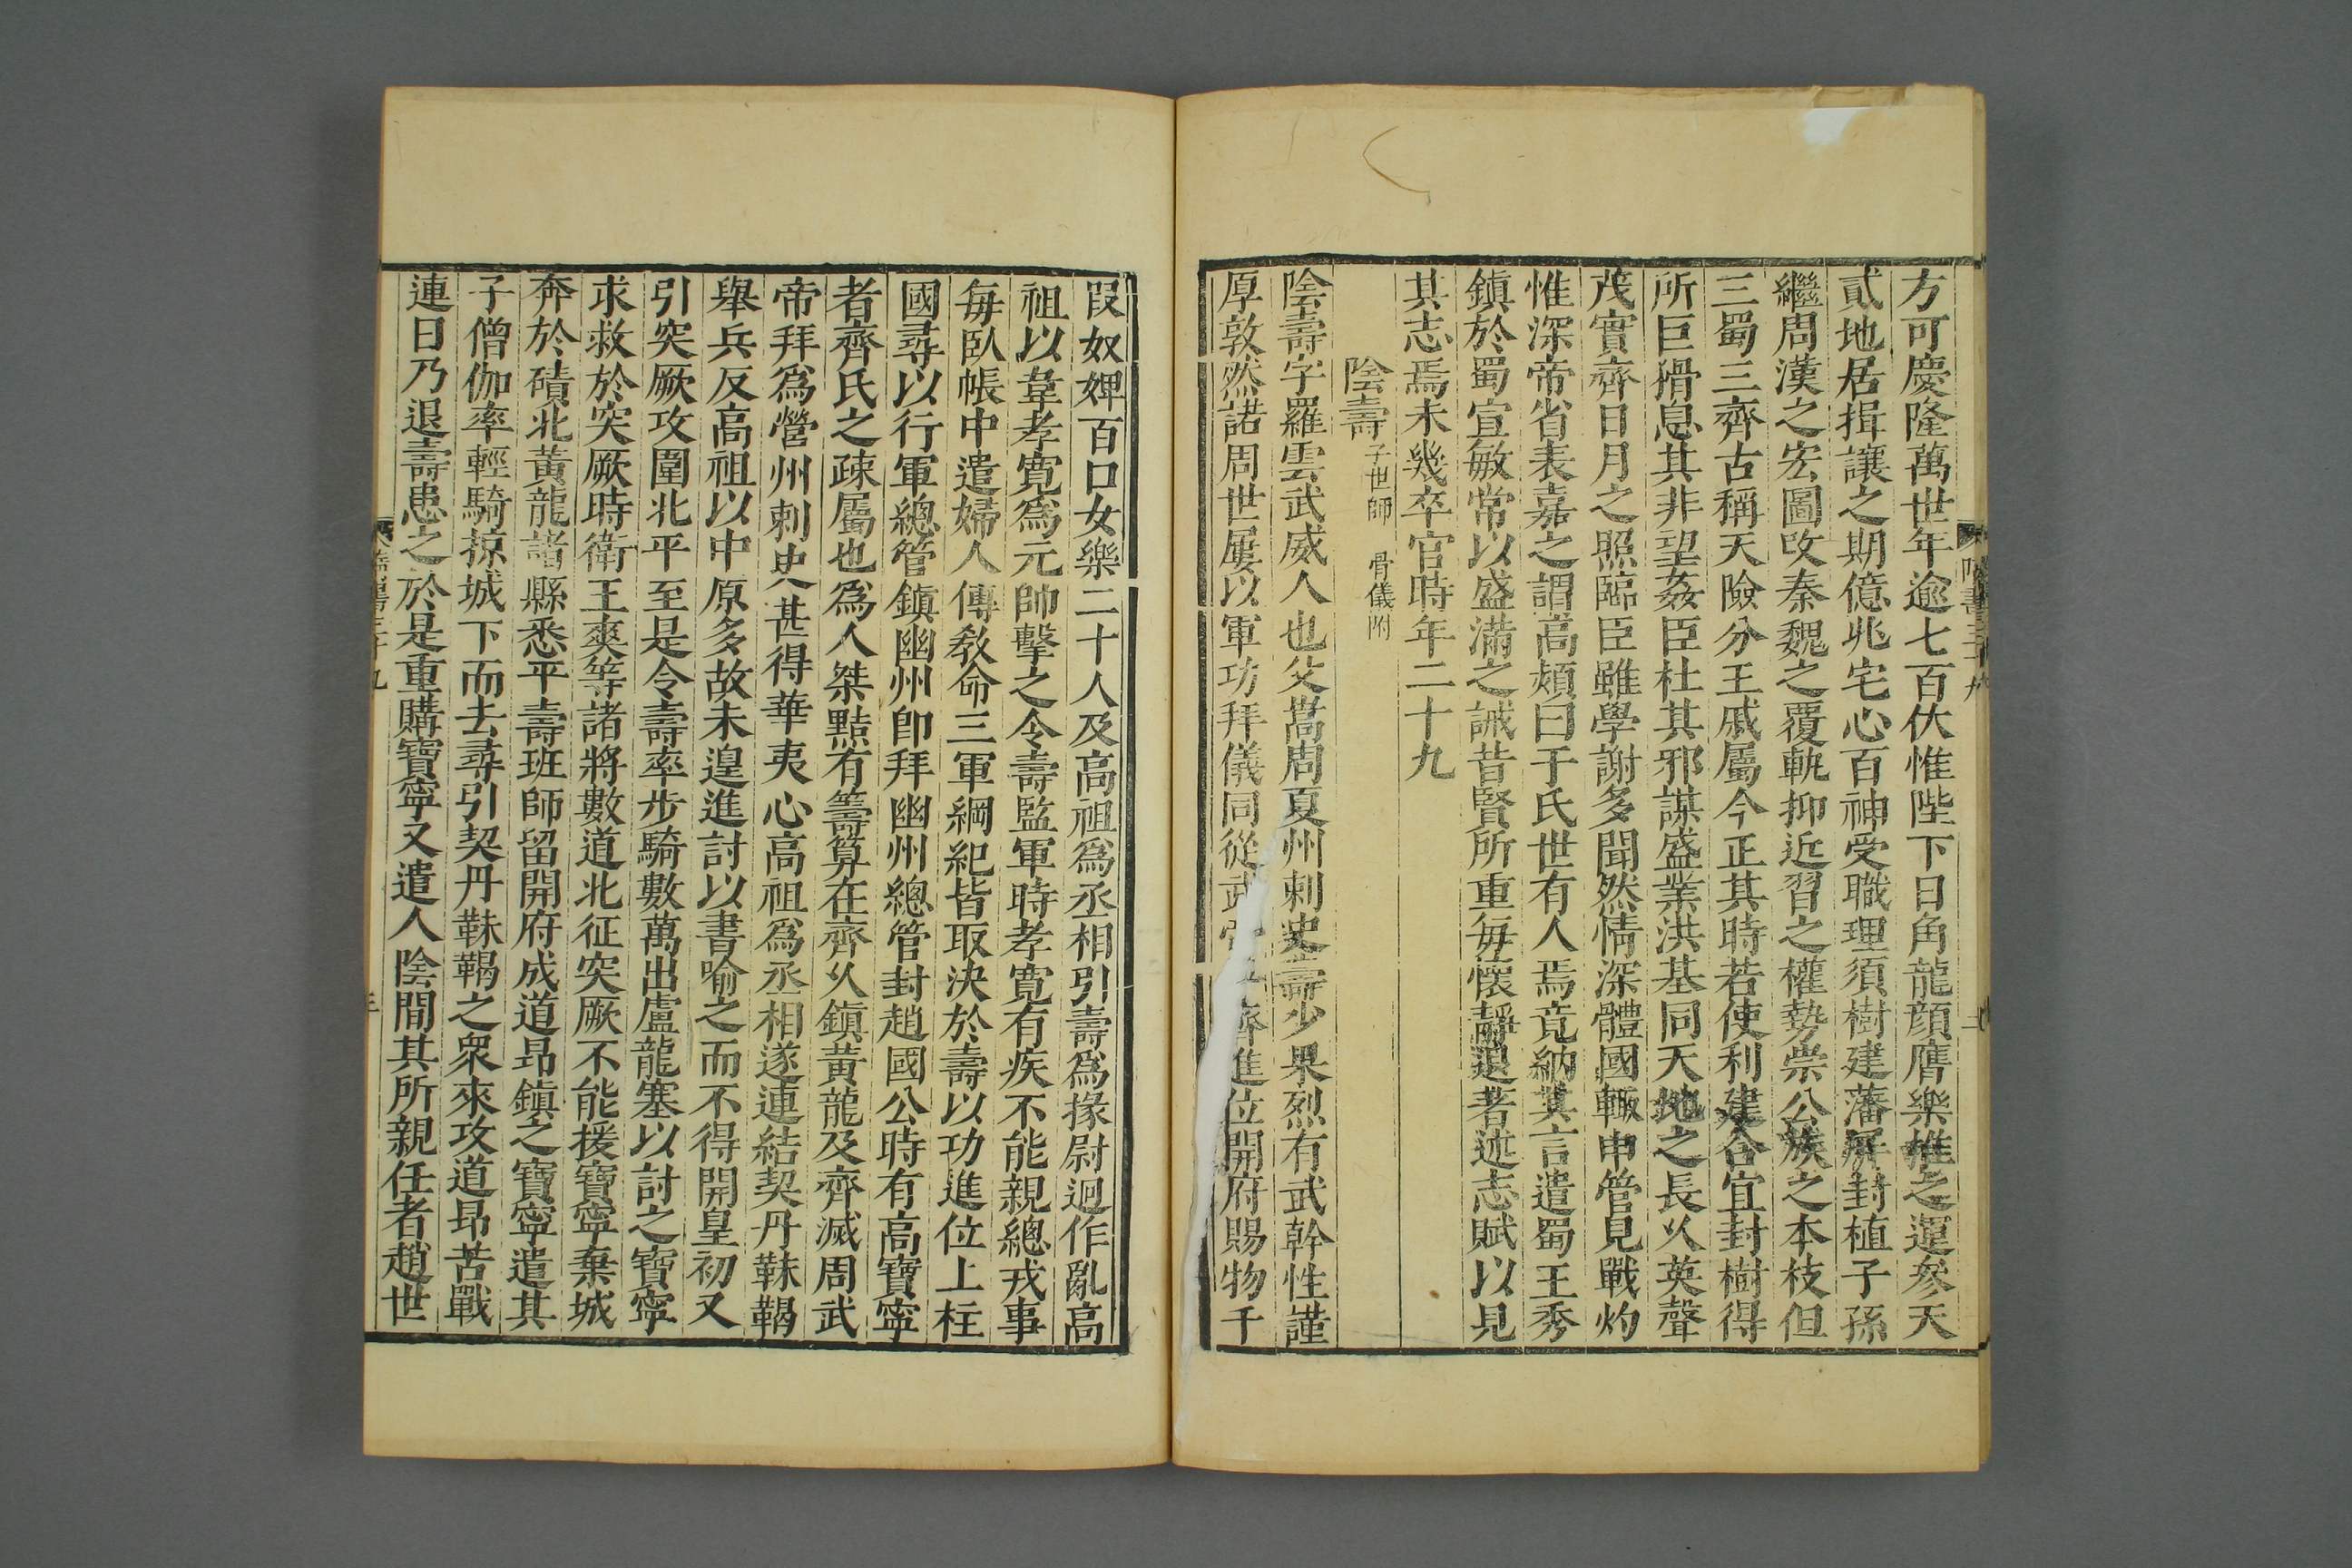 方可慶隆萬世年逾七百伏惟陛下日角龍顔膺樂推之運參天
貳地居揖讓之期億兆宅心百神受職理須樹建藩屏封植子孫
繼周漢之宏圖攺秦魏之覆軌抑近習之權勢崇公族之本枝但
三蜀三齊古稱天險分王戚屬今正其時若使利建合宜封樹得
所巨猾息其非望姦臣杜其邪謀盛業洪基同天地之長乆英聲
茂實齊日月之照臨臣雖學謝多聞然情深體國輙申管見戰灼
惟深帝省表嘉之謂高熲曰于氏世有人焉竟納其言遣蜀王秀
鎮於蜀宣敏常以盛滿之誡昔賢所重每懷靜退著述志賦以見
其志焉未幾卒官時年二十九
陰壽 子世師 骨儀附
陰壽字羅雲武威人也父嵩周夏州刺史壽少果烈有武幹性謹
厚敦然諾周世屢以軍功拜儀同從武 齊進位開府賜物千
叚奴婢百口女樂二十人及高祖爲丞相引壽爲掾尉迥作亂高
祖以韋孝寬爲元帥擊之令壽監軍時孝寬有疾不能親總戎事
每臥帳中遣婦人傳敎命三軍綱紀皆取決於壽以功進位上柱
國尋以行軍總管鎮幽州卽拜幽州總管封趙國公時有高寶寧
者齊氏之疎屬也爲人桀黠有籌算在齊乆鎮黃龍及齊滅周武
帝拜爲營州刺史甚得華夷心高祖爲丞相遂連結契丹靺鞨
舉兵反高祖以中原多故未遑進討以書喻之而不得開皇初又
引突厥攻圍北平至是令壽率步騎數萬出盧龍塞以討之寶寧
求救於突厥時衛王爽等諸將數道北征突厥不能援寶寧棄城
奔於磧北黃龍諸縣悉平壽班師留開府成道昂鎮之寶寧遣其
子僧伽率輕騎掠城下而去尋引契丹靺鞨之衆來攻道昂苦戰
連日乃退壽患之於是重購寶寧又遣人陰間其所親任者趙世